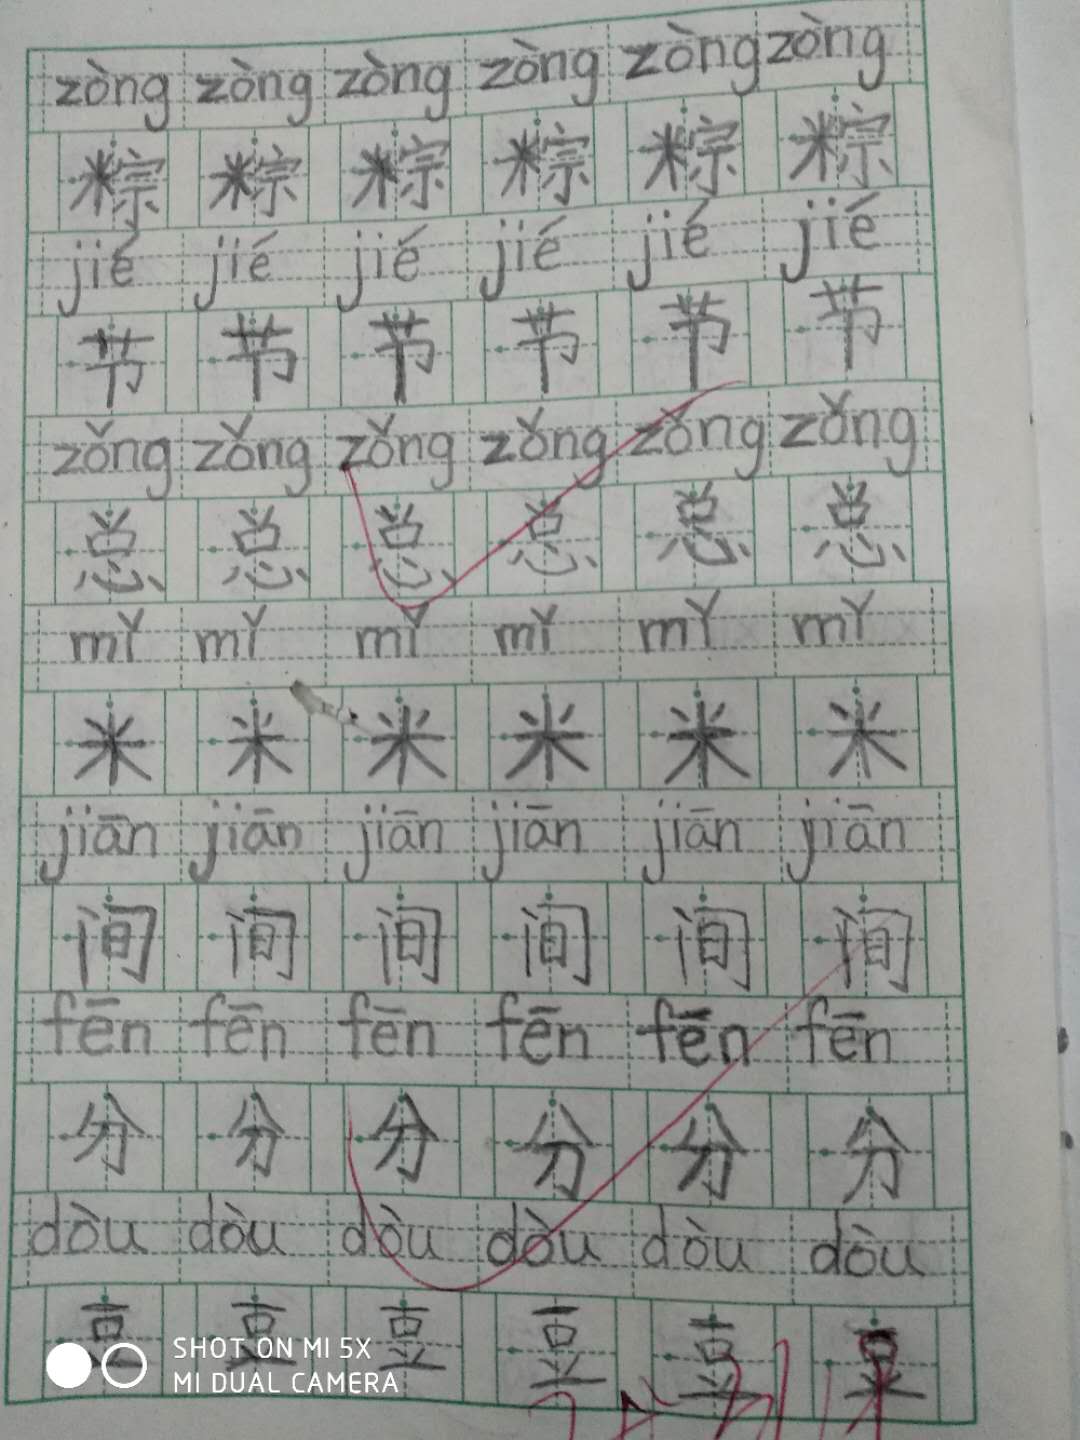 zòng zòng zòng zòng zòng zòng
粽 粽 粽 粽 粽 粽
jié jié jié jié jié jié
节 节 节 节 节 节
zǒng zǒng zǒng zǒng zǒng zǒng
总 总 总 总 总 总
mǐ mǐ mǐ mǐ mǐ mǐ
米 米 米 米 米 米
jiān jiān jiān jiān jiān jiān
间 间 间 间 间 间
fēn fēn fēn fēn fēn fēn
分 分 分 分 分 分
dòu dòu dòu dòu dòu dòu
豆 豆 豆 豆 豆
SHOT ON MI 5X
MI DUAL CAMERA